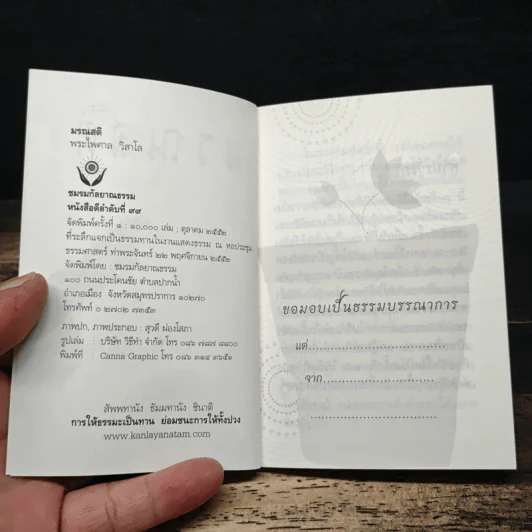 มรณสติ
พระไพศาล วิสาโล
ชมรมกัลยาณธรรม
หนังสือดีลำดับที่ ๙๙
จัดพิมพ์ครั้งที่ ๑ : ๑๐,๐๐๐ เล่ม ; ตุลาคม ๒๕๕๒
ที่ระลึกแจกเป็นธรรมทานในงานแสดงธรรม ณ หอประชุม
ธรรมศาสตร์ ท่าพระจันทร์ ๒๒ พฤศจิกายน ๒๕๕๒
จัดพิมพ์โดย : ชมรมกัลยาณธรรม
๑๐๐ ถนนประโคนชัย ตำบลปากน้ำ
อำเภอเมือง จังหวัดสมุทรปราการ ๑๐๒๗๐
โทรศัพท์ ๐ ๒๗๐๒ ๗๓๕๓
ภาพปก, ภาพประกอบ : สุวดี ผ่องโสภา
รูปเล่ม : บริษัท วิธีทำ จำกัด โทร ๐๘๖ ๗๘๗ ๘๘๐๐
พิมพ์ที่ : Canna Graphic โทร ๐๘๖ ๓๑๔ ๓๖๕๑
สัพพทานัง ธัมมทานัง ชินาติ
การให้ธรรมะเป็นทาน ย่อมชนะการให้ทั้งปวง
www.kanlayanatam.com
ขอมอบเป็นธรรมบรรณาการ
แด่..............................
จาก..............................
..............................